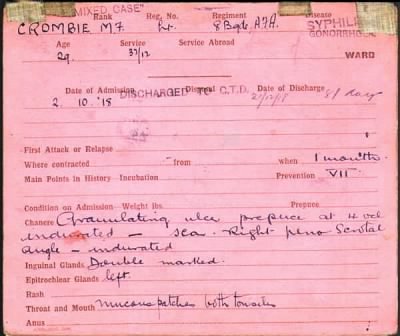 "MIXED CASE"
Rank Reg. No. Regiment Disease
CROMBIE M.F. Lt. 8 Bgde, A.F.A. SYPHILIS
GONORRHOEA
Age Service Service Abroad
29. 37/12 WARD
Date of Admission Disposal Date of Discharge
2. 10. '18 DISCHARGED TO C.T.D. 21/12/18 81 days
First Attack or Relapse
Where contracted from when 1 month.
Main Points in History—Incubation Prevention VII
Condition on Admission—Weight lbs. Prepuce
Chancre Granulating ulcer prepuce at 4 ocl
indurated — scar. Right peno Scrotal
angle — indurated
Inguinal Glands Double marked.
Epitrochlear Glands left.
Rash
Throat and Mouth mucous patches both tonsils
Anus